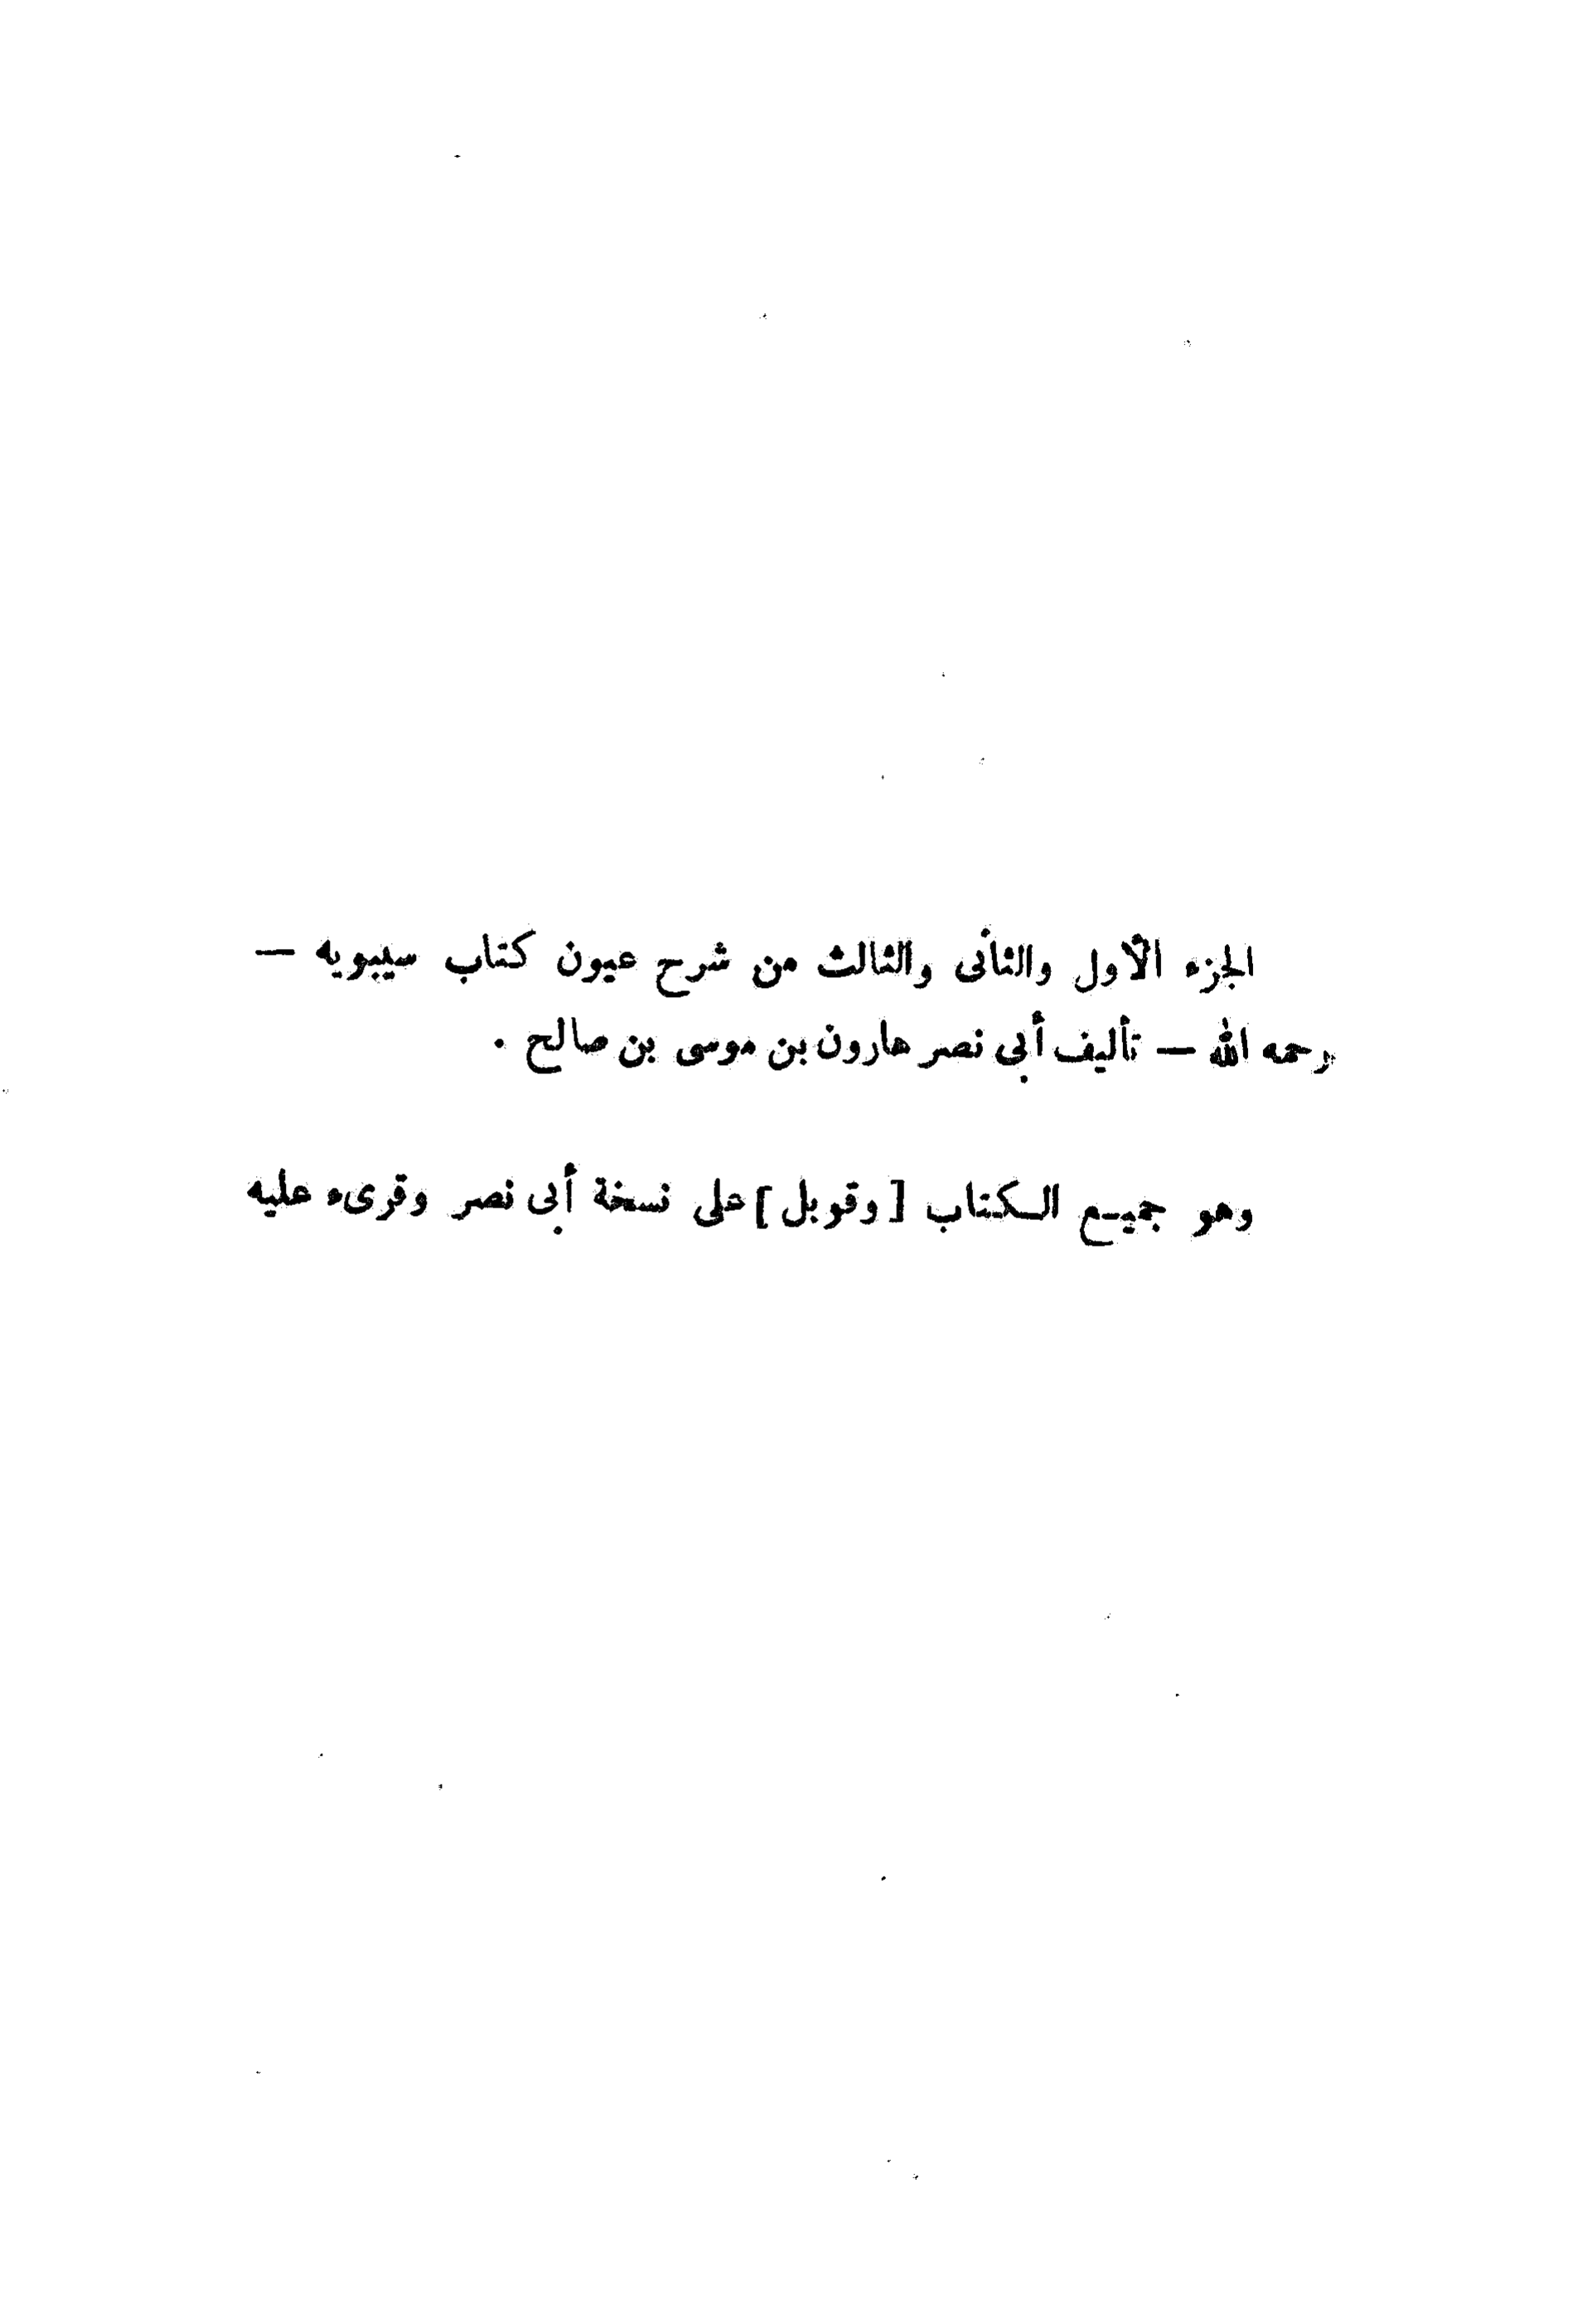 الجزء الأول والثانى والثالث من شرح عيون كتاب سيبويه —
رحمه الله — تأليف أبى نصر هارون بن موسى بن صالح .
وهو جميع الكتاب [وقوبل] على نسخة أبى نصر وقرىء عليه